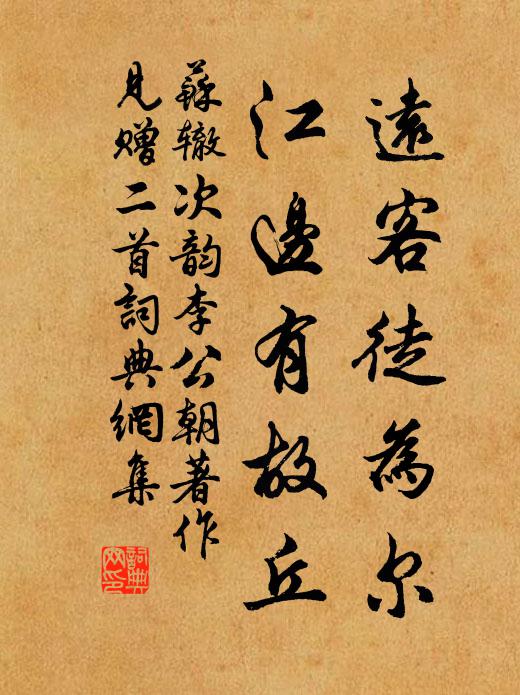 遠客徒為尔
江邊有故丘
蘇辙次韵李公朝著作
見赠二首詞典網集
詞典網印